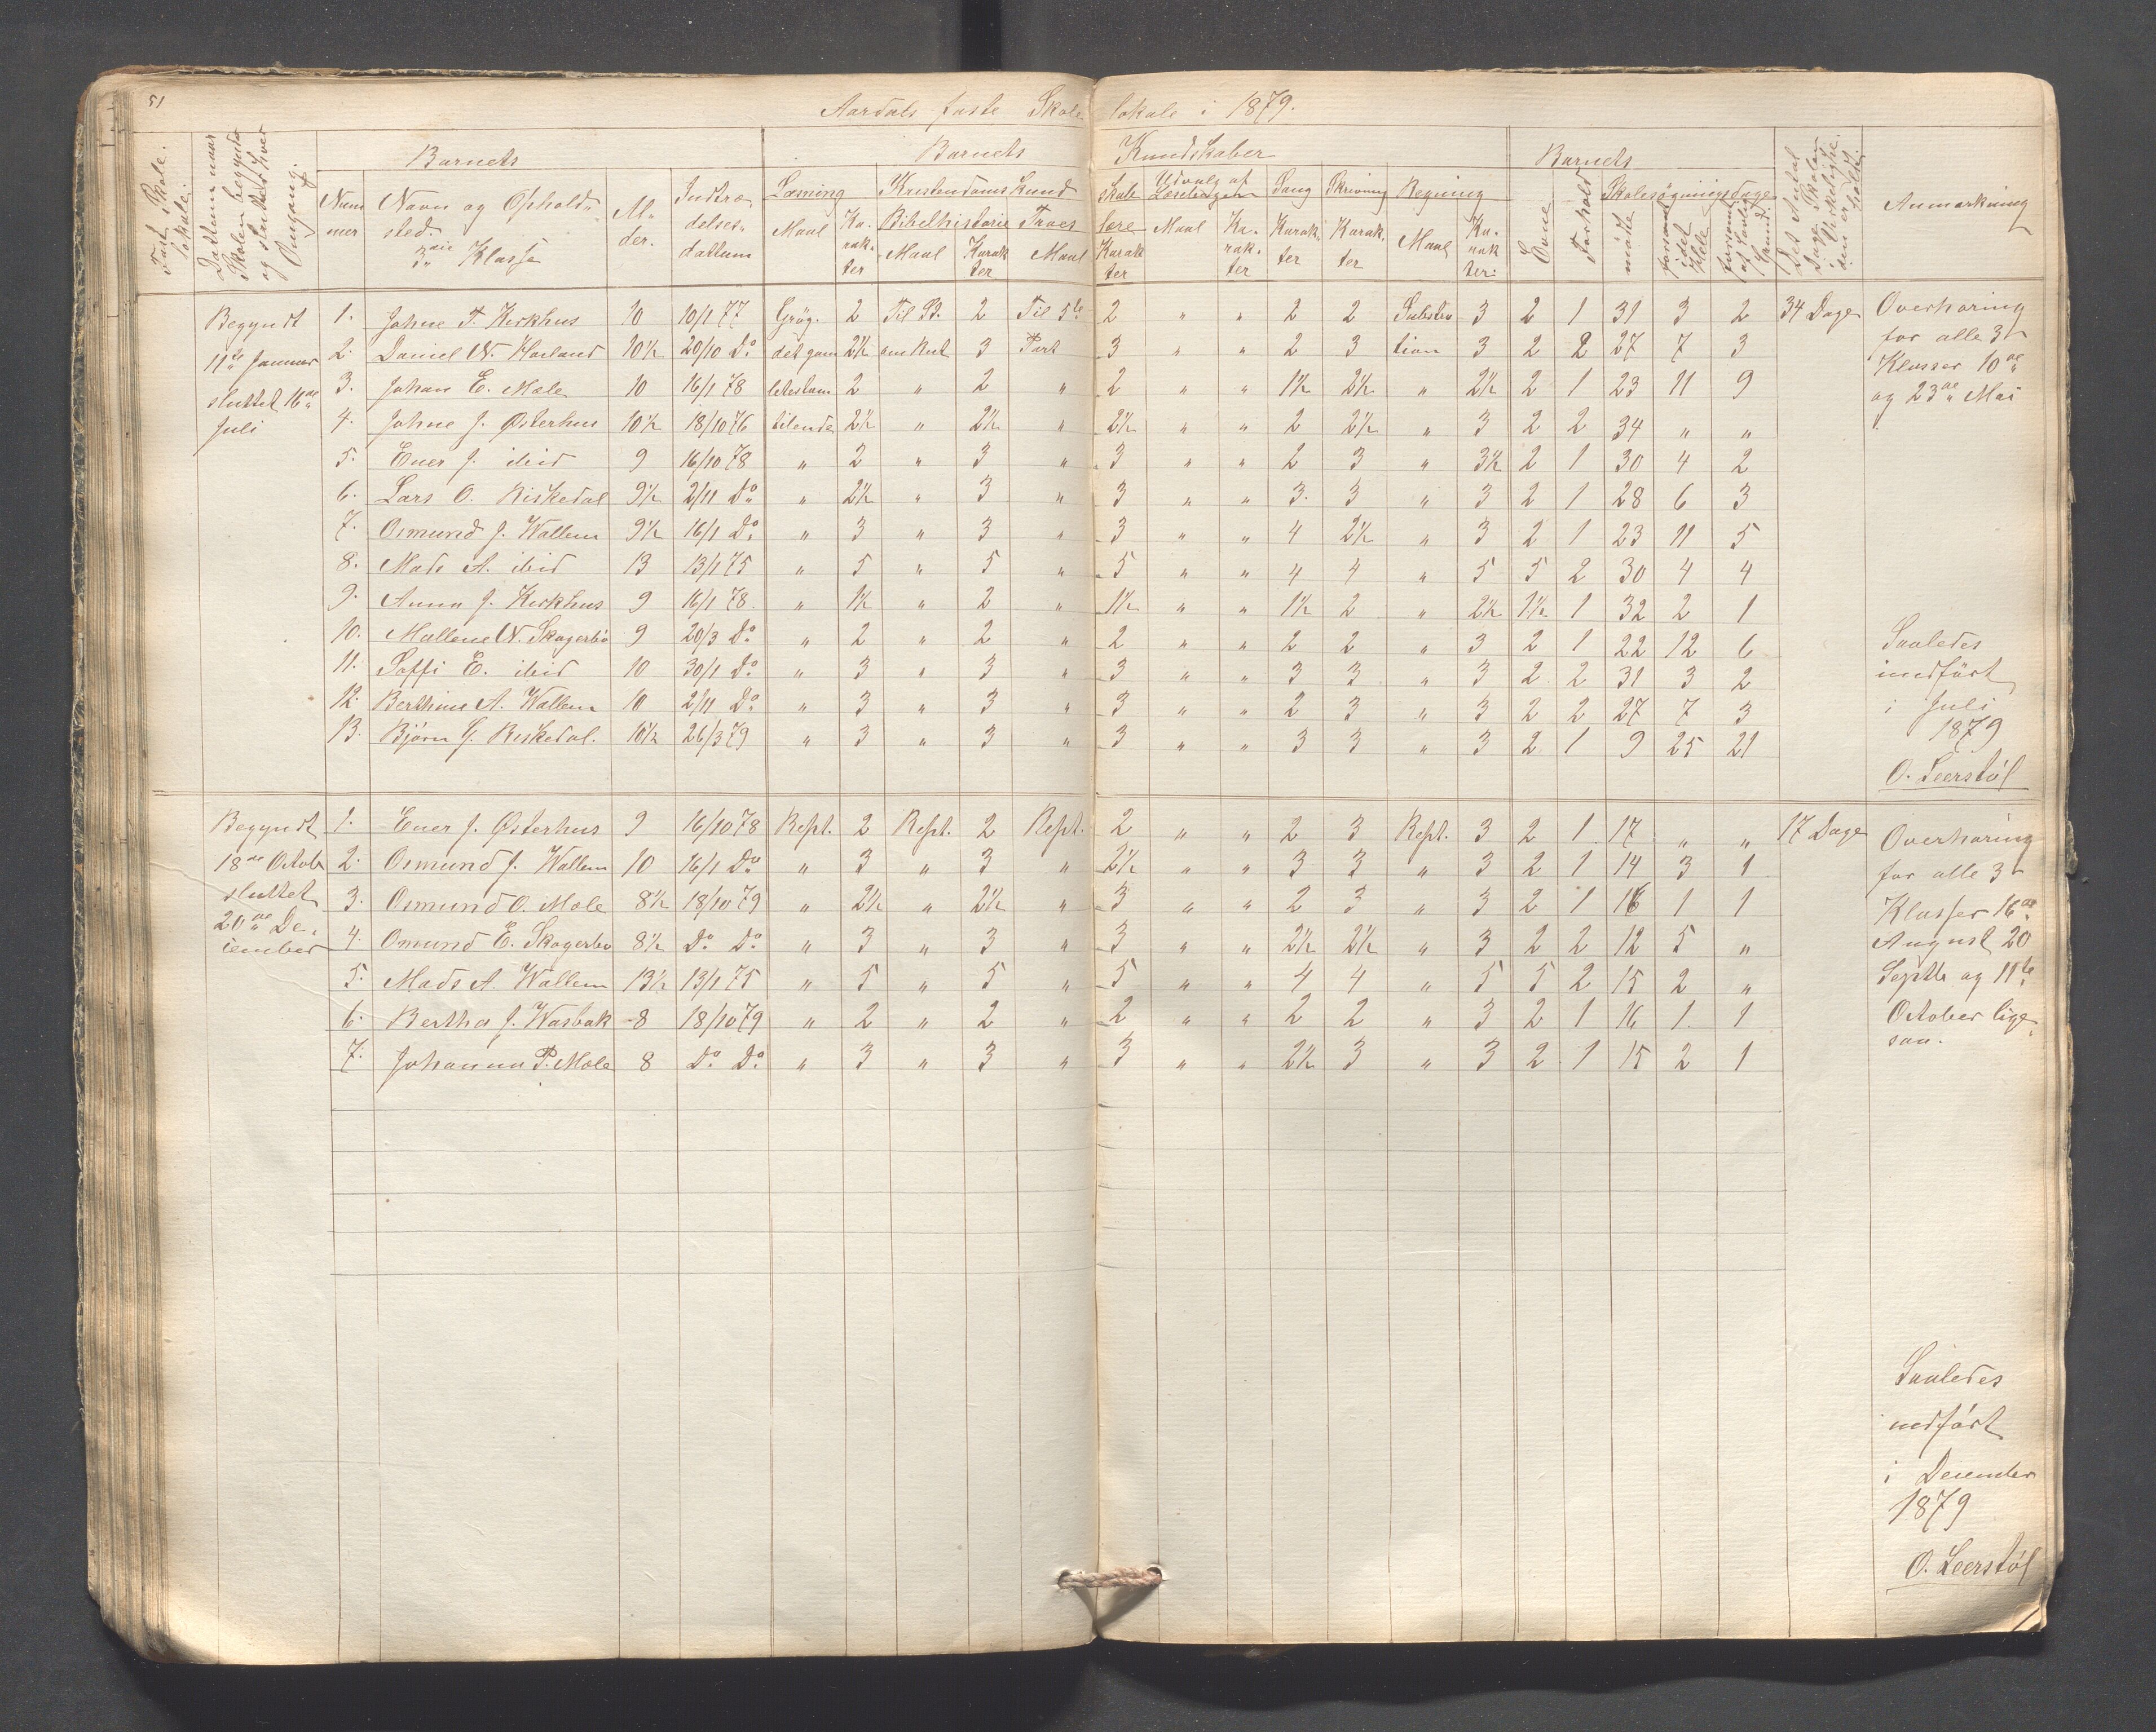 51
Aardals faste Skole lokale i 1879.
Fast Skole lokale.
Dattum naar Skolen begyndte og sluttet hver Omgang.
Barnets
Nummer
Navn og Opholdssted. 3die Klasse
Alder.
Indtrædelsesdattum
Barnets Kundskaber
Læsning
Maal
Karakter
Kristendoms Kundskab
Bibelhistorie
Maal
Karakter
Troeslære
Maal
Karakter
Udvalg af Læsebogen
Maal
Karakter
Sang
Karakter
Skrivning
Karakter
Regning
Maal
Karakter:
Barnets
Evne
Forhold
Skolesøgningsdage
mødte
forsømt i det Hele
forsømt af lovlig Grund.
Det Antal Dage Skolen i Virkeligheden er holdt.
Anmærkning
Begyndt 11te Januar sluttet 16de Juli
1. Johne T. Kirkhus 10 10/1 77 Grøg. 2 Til St. 2 Til 5te 2 " " 2 2 Substra 3 2 1 31 3 2 34 Dage
2. Daniel N. Hauland 10½ 20/10 Do det gam 2½ 3 Part 3 " " 2 3 tion 3 2 2 27 7 3
3. Johan E. Mæle 10 16/1 78 letestam 2 " 2 " 2 " " 1½ 2½ " 2½ 2 1 23 11 9
4. Johne J. Østerhus 10½ 18/10 76 tilende 2½ " 2½ " 2½ " " 2 2½ " 3 2 2 34 " "
5. Ener J. ibid 9 16/10 78 " 2 " 3 " 3 " " 2 3 " 3½ 2 1 30 4 2
6. Lars O. Riskedal 9½ 2/11 Do " 2½ " 3 " 3 " " 3. 3 " 3 2 1 28 6 3
7. Osmund J. Wallem 9½ 16/1 Do " 3 " 3 " 3 " " 4 2½ " 3 2 1 23 11 5
8. Mads A. ibid 13 13/1 75 " 5 " 5 " 5 " " 4 4 " 5 5 2 30 4 4
9. Anna J. Kirkhus 9 16/1 78. " 1½ " 2 " 1½ " " 1½ 2 " 2½ 1½ 1 32 2 1
10. Mallene N. Skogerbø 9 20/3 Do " 2 " 2 " 2 " " 2 2 " 3 2 1 22 12 6
11. Soffi E. ibid 10 30/1 Do " 3 " 3 " 3 " " 3 3 " 3 2 2 31 3 2
12. Berthine A. Wallem 10 2/11 Do " 3 " 3 " 3 " " 2 3 " 3 2 2 27 7 3
13. Bjørn G. Riskedal. 10½ 26/3 79 " 3 " 3 " 3 " " 3 3 " 3 2 1 9 25 21
Overhøring
for alle 3
Klasser 10de
og 23de Mai
Saaledes
indført
i Juli
1879
O. Leerstøl
Begyndt 18de Octob sluttet 20de December
1. Ener J. Østerhus 9 16/10 78 Rept. 2 Rept. 2 Rept. 2 " " 2 3 Rept. 3 2 1 17 " " 17 Dage
2. Osmund J. Wallem 10 16/1 Do " 3 " 3 " 2½ " " 3 3 " 3 2 1 14 3 1
3. Osmund O. Mæle 8½ 18/10 79 " 2½ " 2½ " 3 " " 2 3 " 3 2 1 16 1 1
4. Omund E. Skogerbø 8½ Do Do " 3 " 3 " 3 " " 2½ 2½ " 3 2 2 12 5 "
5. Mads A. Wallem 13½ 13/1 75 " 5 " 5 " 5 " " 4 4 " 5 5 2 15 2 "
6. Bertha J. Wasbak 8 18/10 79 " 2 " 2 " 2 " " 2 2 " 3 2 1 16 1 1
7. Johanna P. Mæle 8 Do Do " 3 " 3 " 3 " " 2½ 3 " 3 2 1 15 2 1
Overhøring
for alle 3
Klasser 16de
August 20
Septbr og 11te
October lige
saa.
Saaledes
indført
i December
1879
O. Leerstøl